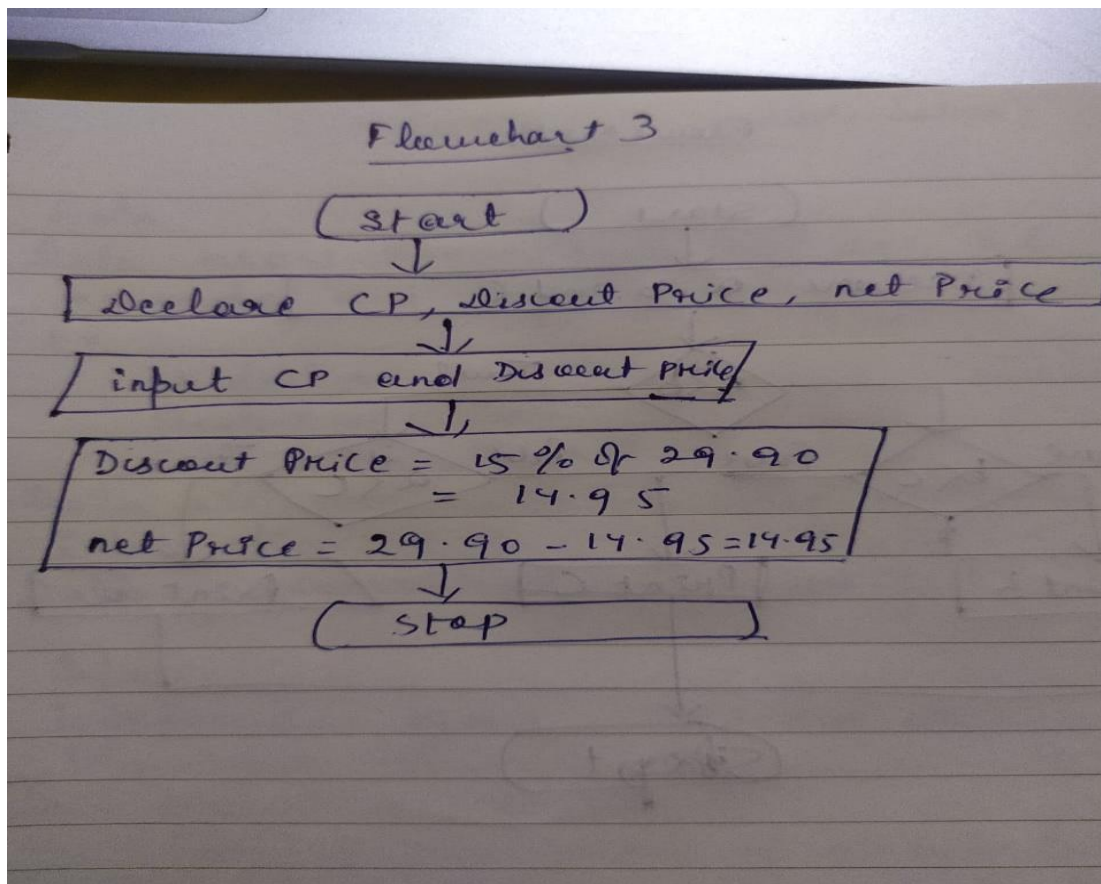 Flowchart 3
Start
Declare CP, Discout Price, net Price
input CP and Discout Price
Discout Price = 15% of 29.90
= 14.95
net Price = 29.90 - 14.95=14.95
Stop